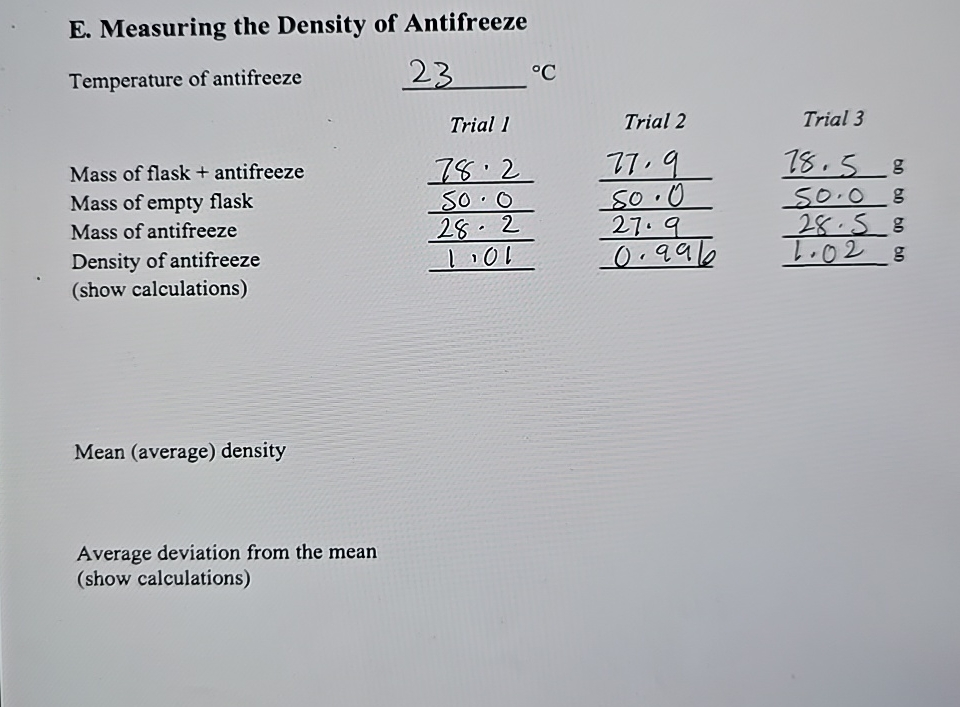 E. Measuring the Density of Antifreeze
Temperature of antifreeze 23 °C
Trial 1 Trial 2 Trial 3
Mass of flask + antifreeze 78.2 77.9 78.5 g
Mass of empty flask 50.0 50.0 50.0 g
Mass of antifreeze 28.2 27.9 28.5 g
Density of antifreeze 1.01 0.996 1.02 g
(show calculations)
Mean (average) density
Average deviation from the mean
(show calculations)